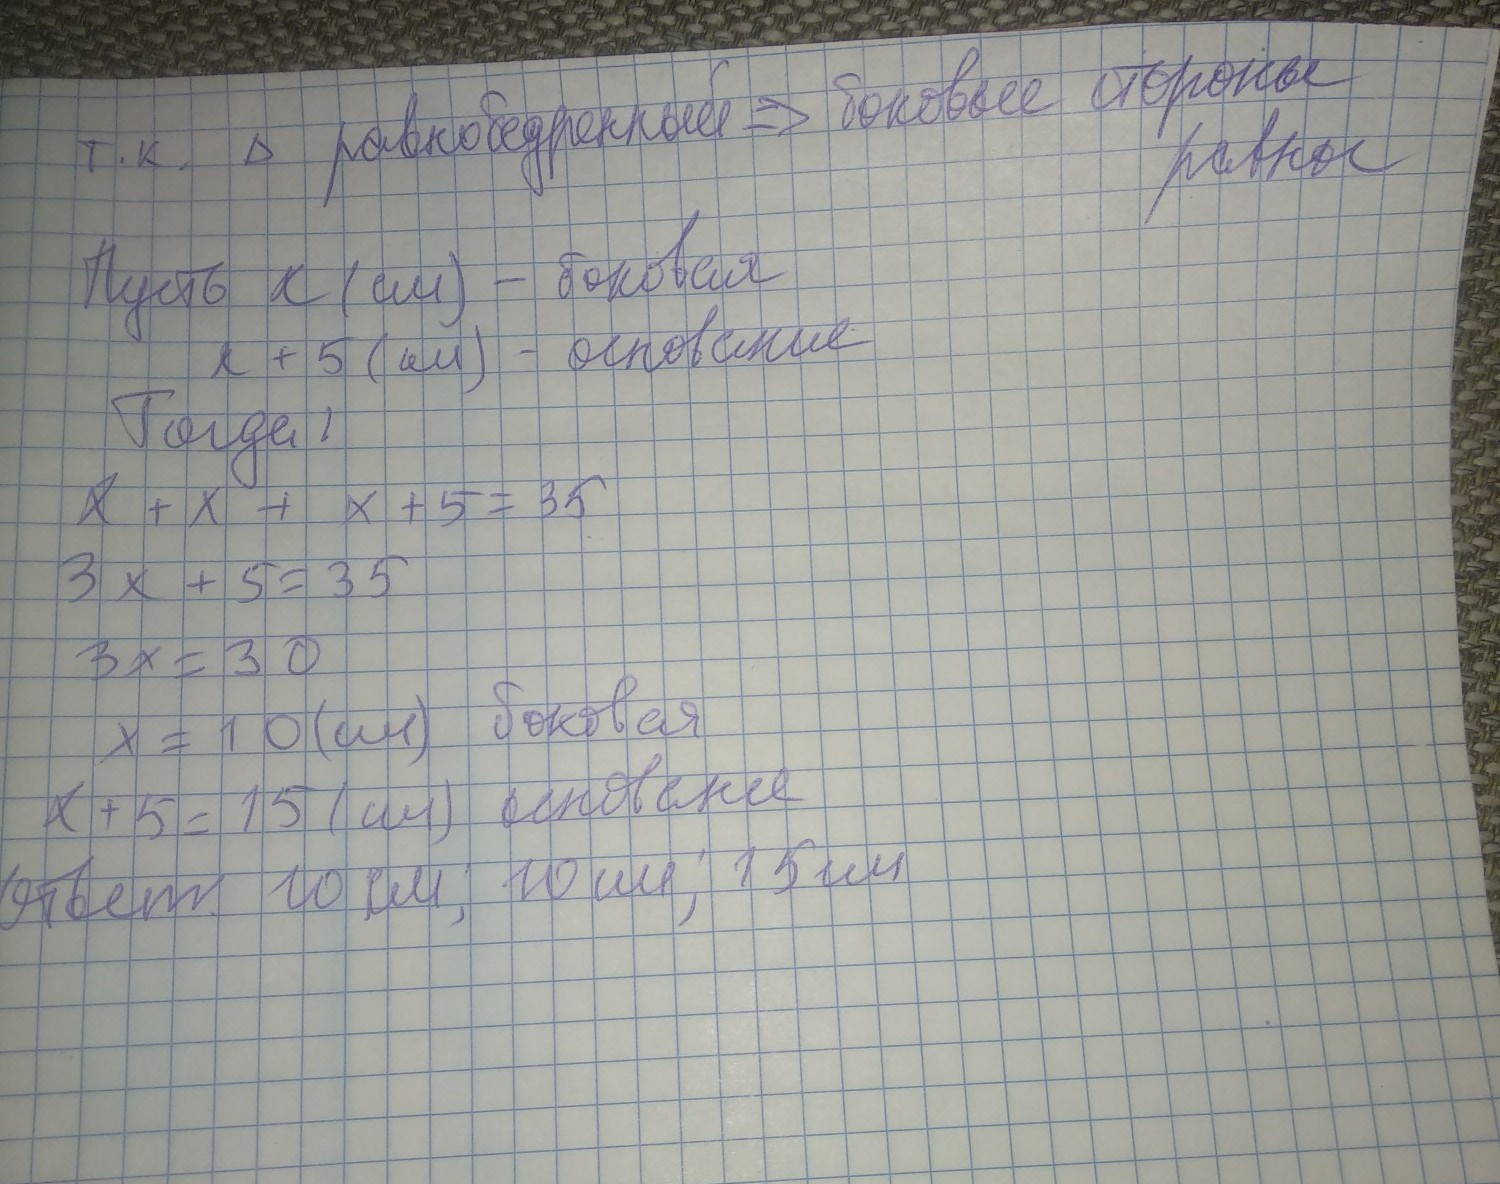 т.к. Δ равнобедренный => боковые стороны
равны
Пусть x (см) - боковая
x + 5 (см) - основание
Тогда:
x + x + x + 5 = 35
3x + 5 = 35
3x = 30
x = 10 (см) боковая
x + 5 = 15 (см) основание
Ответ: 10 см; 10 см; 15 см